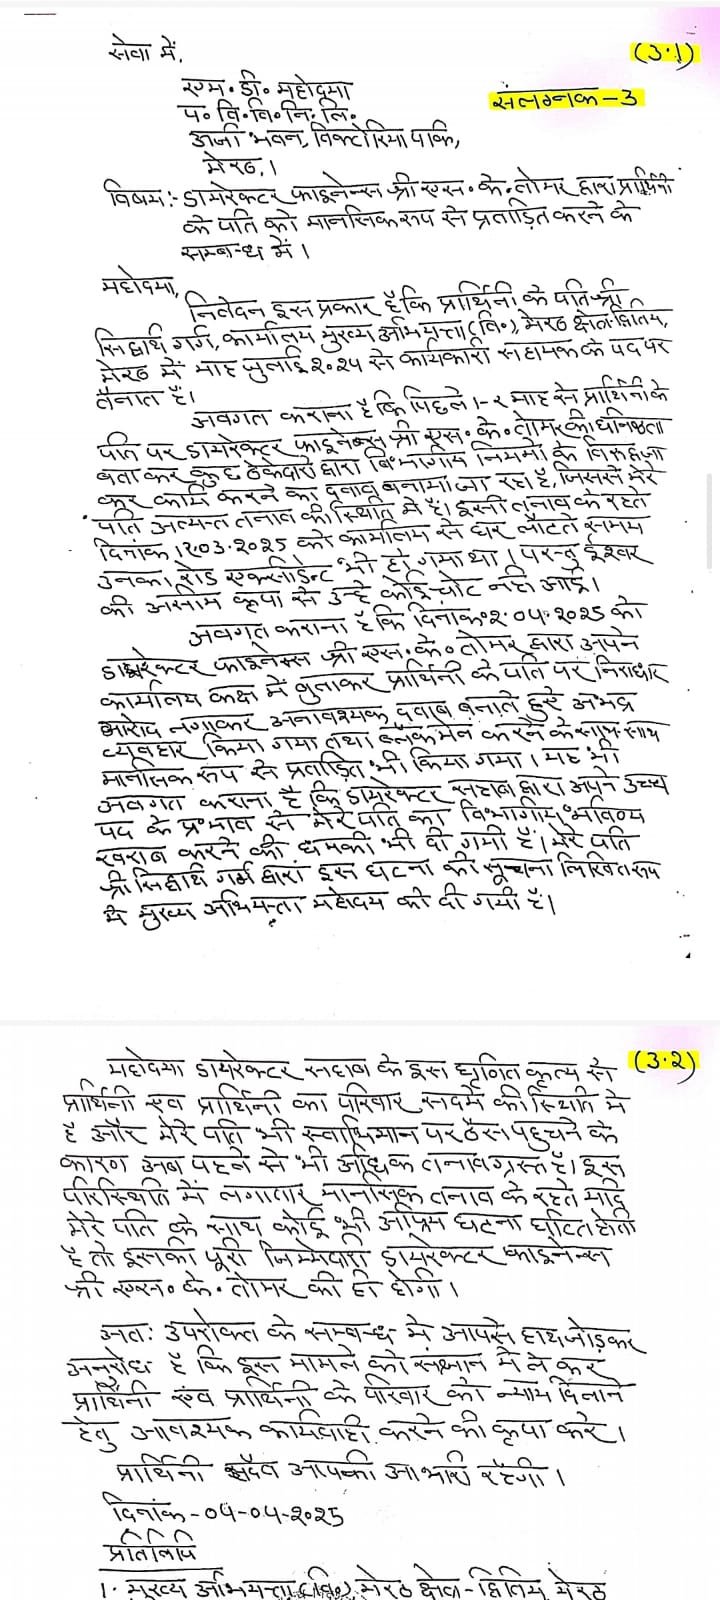 सेवा में,
(3.1)
एम.डी. महोदया
संलग्नक-3
प.वि.वि.नि.लि.
ऊर्जा भवन, विक्टोरिया पार्क,
मेरठ,।
विषय:- डायरेक्टर फाइनेन्स श्री एस.के.तोमर द्वारा प्रार्थिनी
के पति को मानसिक रूप से प्रताड़ित करने के
सम्बन्ध में।
महोदया,
निवेदन इस प्रकार है कि प्रार्थिनी के पति श्री
सिद्धार्थ गर्ग, कार्यालय मुख्य अभियन्ता (वि०), मेरठ क्षेत्र-द्वितिय,
मेरठ में माह जुलाई 2024 से कार्यकारी सहायक के पद पर
तैनात है।
अवगत कराना है कि पिछले 1-2 माह से प्रार्थिनी के
पति पर डायरेक्टर फाइनेन्स श्री एस.के.तोमर की घनिष्ठता
बता कर कुछ ठेकेदारों द्वारा विभागीय नियमों के विरूद्ध जा
कर कार्य करने का दवाव बनाया जा रहा है, जिससे मेरे
पति अत्यन्त तनाव की स्थिति में है। इसी तनाव के रहते
दिनांक 12.03.2025 को कार्यालय से घर लौटते समय
उनका रोड एक्सीडेन्ट भी हो गया था। परन्तु ईश्वर
की असीम कृपा से उन्हे कोई चोट नही आई।
अवगत कराना है कि दिनांक 02.04.2025 को
डायरेक्टर फाइनेन्स श्री एस.के.तोमर द्वारा अपने
कार्यालय कक्ष में बुलाकर प्रार्थिनी के पति पर निराधार
आरोप लगाकर अनावश्यक दवाब बनाते हुए अभद्र
व्यवहार किया गया तथा ब्लैकमेल करने के साथ साथ
मानसिक रूप से प्रताड़ित भी किया गया। यह भी
अवगत कराना है कि डायरेक्टर साहब द्वारा अपने उच्च
पद के प्रभाव से मेरे पति का विभागीय भविष्य
खराब करने की धमकी भी दी गयी है। मेरे पति
श्री सिद्धार्थ गर्ग द्वारा इस घटना की सूचना लिखित रूप
में मुख्य अभियन्ता महोदय को दी गयी है।
(3.2)
महोदया डायरेक्टर साहब के इस घृणित कृत्य से
प्रार्थिनी एंव प्रार्थिनी का परिवार सदमे की स्थिति में
है और मेरे पति भी स्वाभिमान पर ठेस पहुचने के
कारण अब पहले से भी अधिक तनावग्रस्त है। इस
परिस्थिति में लगातार मानसिक तनाव के रहते यदि
मेरे पति के साथ कोई भी अप्रिय घटना घटित होती
है तो इसकी पूरी जिम्मेदारी डायरेक्टर फाइनेन्स
श्री एस.के.तोमर की ही होगी।
अतः उपरोक्त के सम्बन्ध में आपसे हाथ जोड़कर
अनुरोध है कि इस मामले को संज्ञान में ले कर
प्रार्थिनी एंव प्रार्थिनी के परिवार को न्याय दिलाने
हेतु आवश्यक कार्यवाही करने की कृपा करे।
प्रार्थिनी सदैव आपकी आभारी रहेगी।
दिनांक-04-04-2025
प्रतिलिपि
1. मुख्य अभियन्ता (वि०), मेरठ क्षेत्र-द्वितिय मेरठ